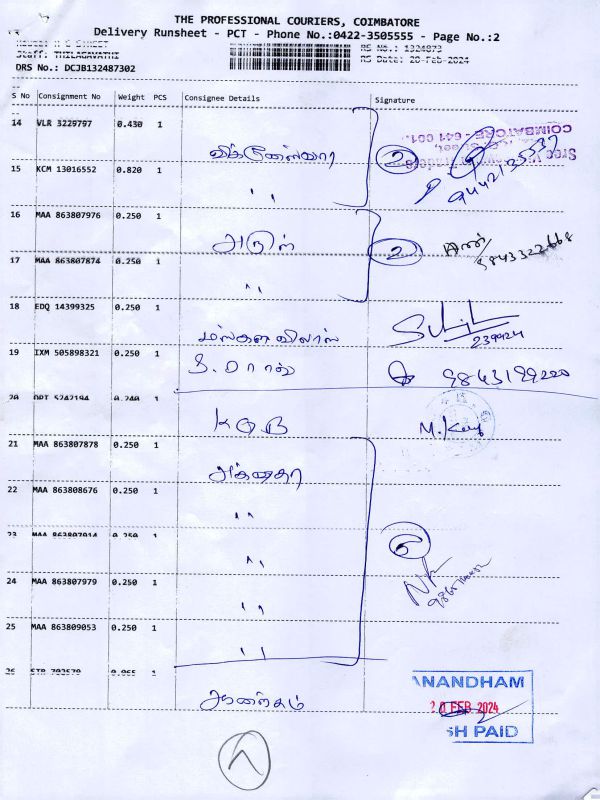 THE PROFESSIONAL COURIERS, COIMBATORE
Delivery Runsheet - PCT - Phone No.:0422-3505555 - Page No.:2
Staff: THILAGAVATHI
RS No.: 1324873
RS Date: 20-Feb-2024
DRS No.: DCJB132487302
S No Consignment No Weight PCS Consignee Details Signature
14 VLR 3229797 0.430 1
COIMBATORE - 641 001.
9442135537
2
15 KCM 13016552 0.820 1
" "
16 MAA 863807976 0.250 1
அருள்
2
9843322668
17 MAA 863807874 0.250 1
" "
18 EDQ 14399325 0.250 1
மங்கள விலாஸ்
19 IXM 505898321 0.250 1
9843199220
20 DPT 5242194 0.240 1
KGB
21 MAA 863807878 0.250 1
22 MAA 863808676 0.250 1
" "
23 MAA 863807914 0.250 1
" "
24 MAA 863807979 0.250 1
" "
25 MAA 863809053 0.250 1
" "
26 STR 702579 0.065 1
ANANDHAM
20 FEB 2024
SH PAID